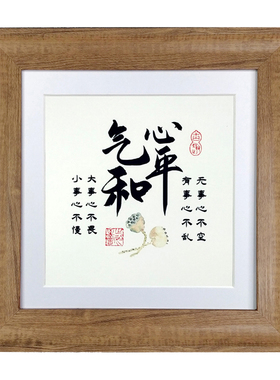 心平
气和
无事心不空
有事心不乱
大事心不畏
小事心不慢